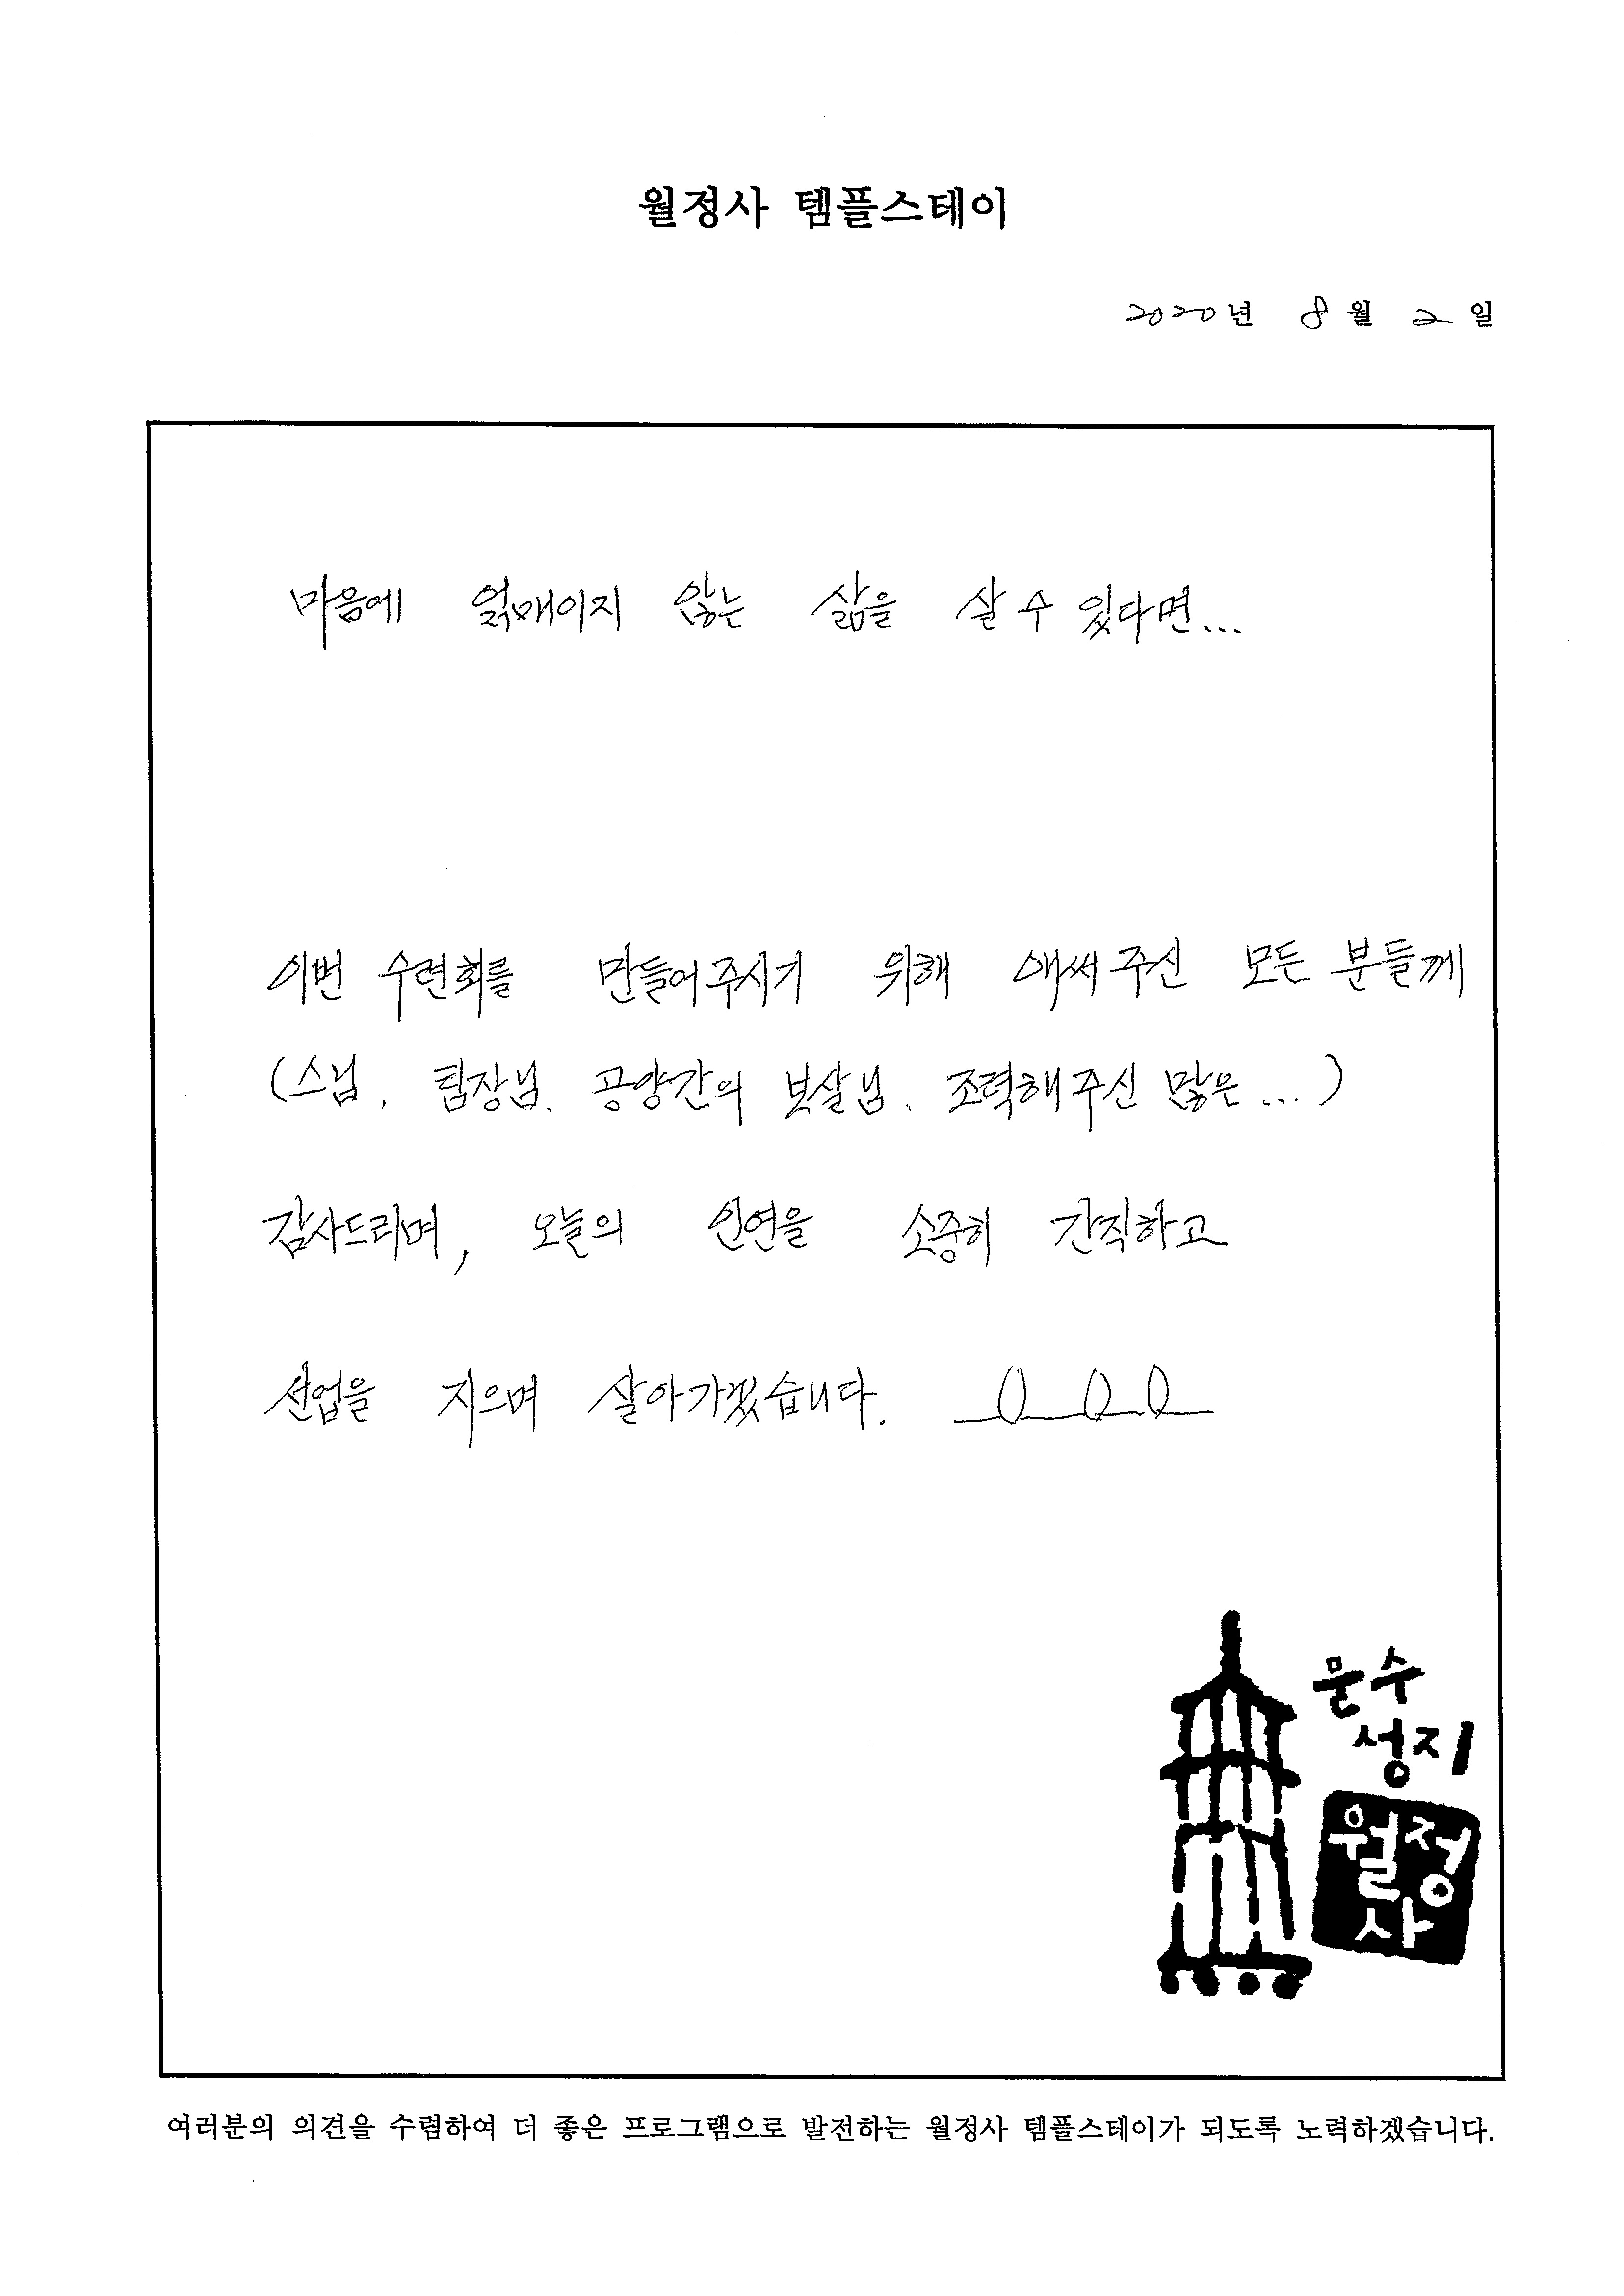 월정사 템플스테이
2020년 8월 2일
마음에 얽매이지 않는 삶을 살 수 있다면...
이번 수련회를 만들어주시기 위해 애써주신 모든 분들께
(스님, 팀장님, 공양간의 보살님, 조력해주신 많은...)
감사드리며, 오늘의 인연을 소중히 간직하고
선업을 지으며 살아가겠습니다.
문수
성지
월정
사
여러분의 의견을 수렴하여 더 좋은 프로그램으로 발전하는 월정사 템플스테이가 되도록 노력하겠습니다.